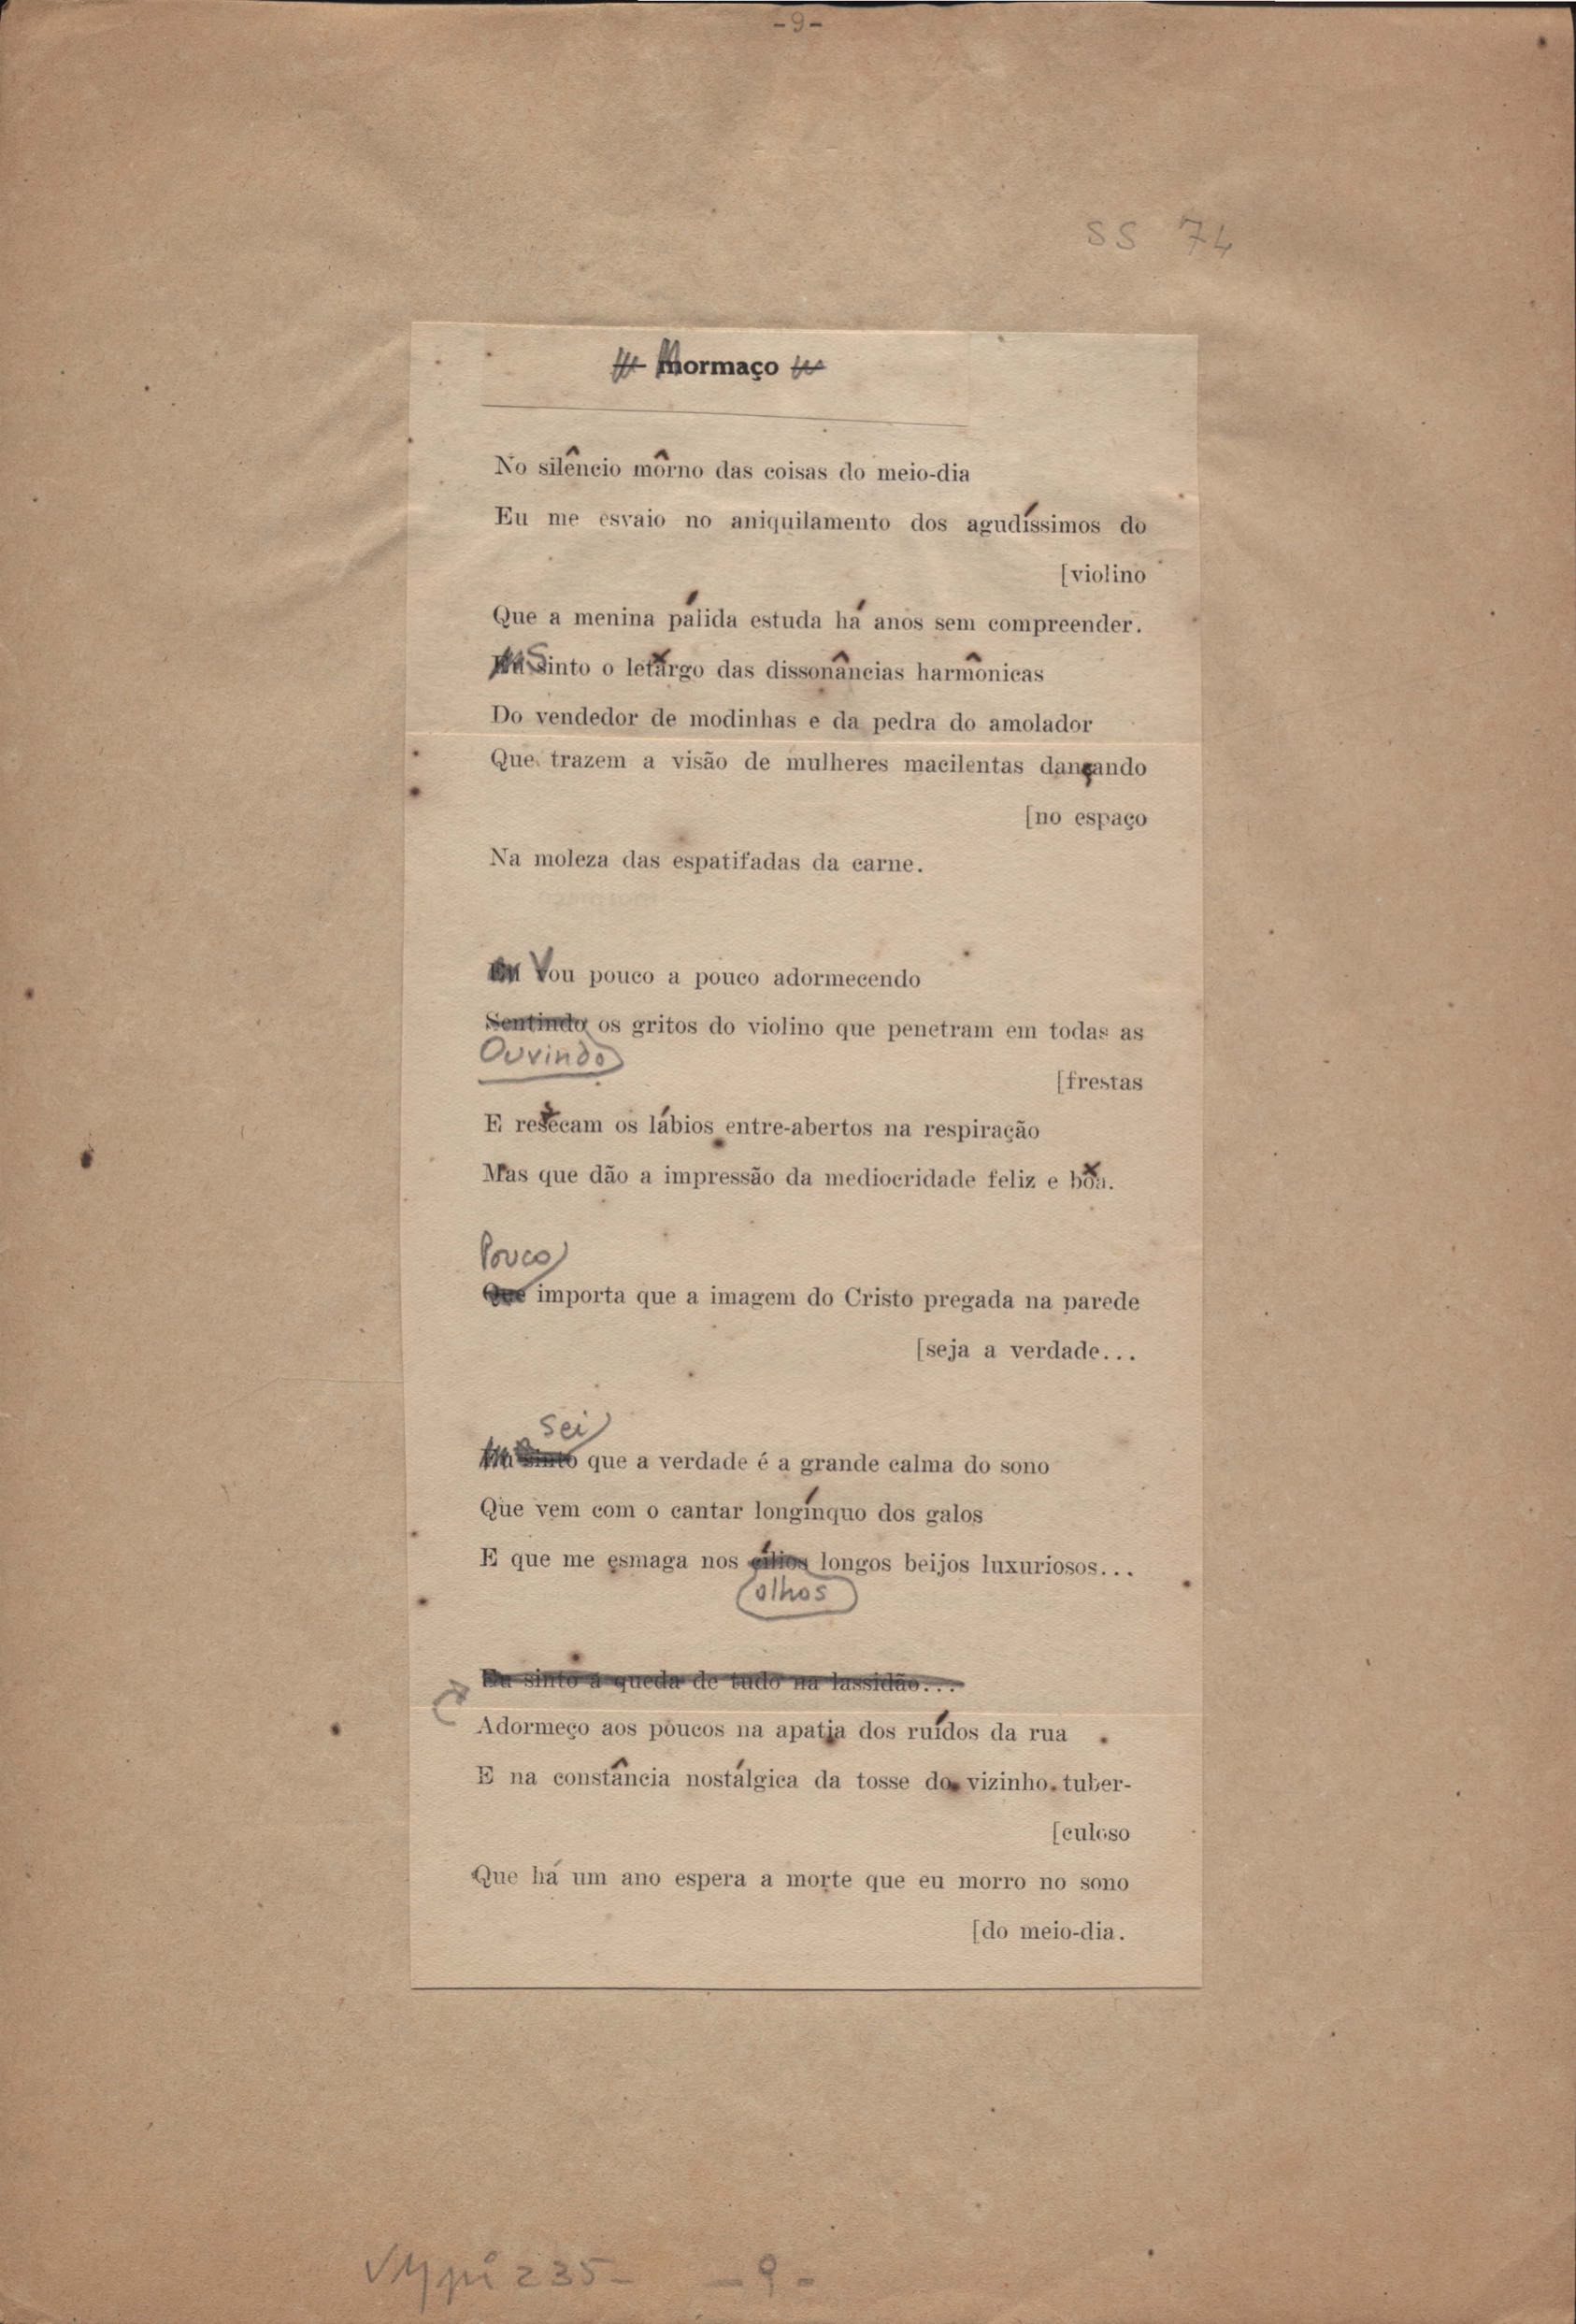 -9-
SS 74
Mormaço
No silêncio môrno das coisas do meio-dia
Eu me esvaio no aniquilamento dos agudíssimos do
[violino
Que a menina pálida estuda há anos sem compreender.
Sinto o letargo das dissonâncias harmônicas
Do vendedor de modinhas e da pedra do amolador
Que trazem a visão de mulheres macilentas dançando
[no espaço
Na moleza das espatifadas da carne.
Eu Vou pouco a pouco adormecendo
Sentindo os gritos do violino que penetram em todas as
Ouvindo
[frestas
E resecam os lábios entre-abertos na respiração
Mas que dão a impressão da mediocridade feliz e bôa.
Pouco
Que importa que a imagem do Cristo pregada na parede
[seja a verdade...
Sei
sinto que a verdade é a grande calma do sono
Que vem com o cantar longínquo dos galos
E que me esmaga nos cílios longos beijos luxuriosos...
olhos
Eu sinto a queda de tudo na lassidão...
Adormeço aos poucos na apatia dos ruídos da rua
E na constância nostálgica da tosse do vizinho tuber-
[culoso
Que há um ano espera a morte que eu morro no sono
[do meio-dia.
235 - - 9 -